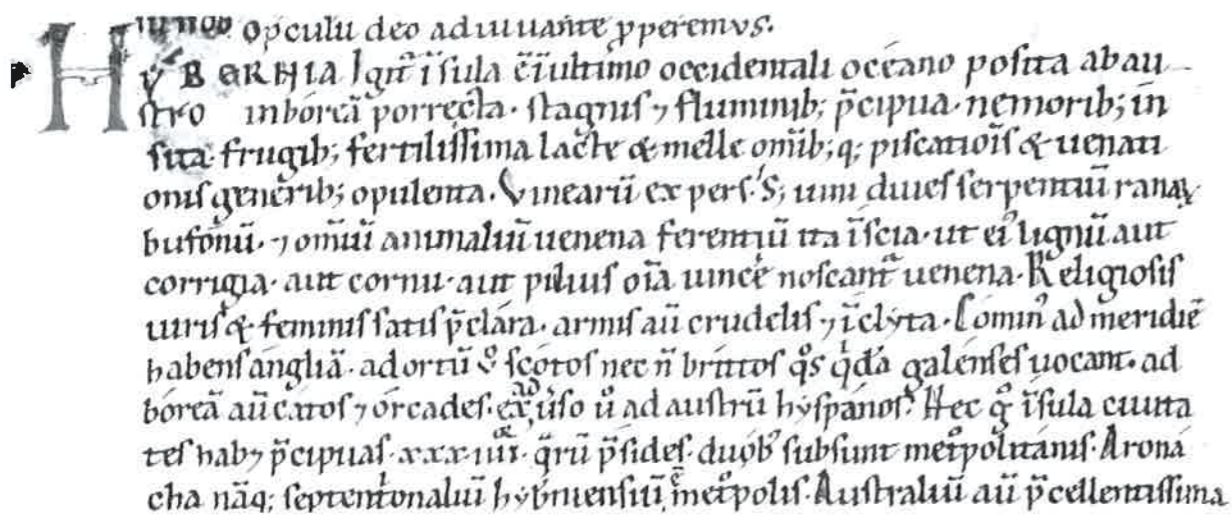 opculū deo adiuuante ꝓperemus.
HYBERNIA Igit᷑ ĩsula ē ĩ ultimo occidentali océano posita ab au
stro in bóreā porrecta· stagnis ⁊ fluminib; p̄cipua· nemorib; in
sita· frugib; fertilissima lacte & melle om̄ib; q; piscatiōis & uenati
onis generib; opulenta. Vinearū expers. S; uini diues serpentiū ranaꝝ
bufonū· ⁊ om̄iū animaliū uenena ferentiū ita ĩscia· ut eiꝰ lignū aut
corrigia· aut cornu· aut puluis oīa uincẽ noscant᷑ uenena· Religiosis
uiris & feminis satis p̄clára· armis aū crudelis ⁊ ĩclyta· Comin᷒ ad meridiē
habens angliā· ad ortū uͦ scótos nec n̄ brittos qͦs qͥdā galénses uocant· ad
bóreā aū catos ⁊ órcades· ex aduerso uͦ ad austrū hyspános. Hec gͦ ĩsula ciuita
tes habꝫ p̄cipuas· xxx·iiii· qͣrū p̄sides· duobꝰ subsunt met̊politánis· Aroná
cha nāq; septentͥonaliū hybniensiū ē met̊polis· Australiū aū p̄cellentissima